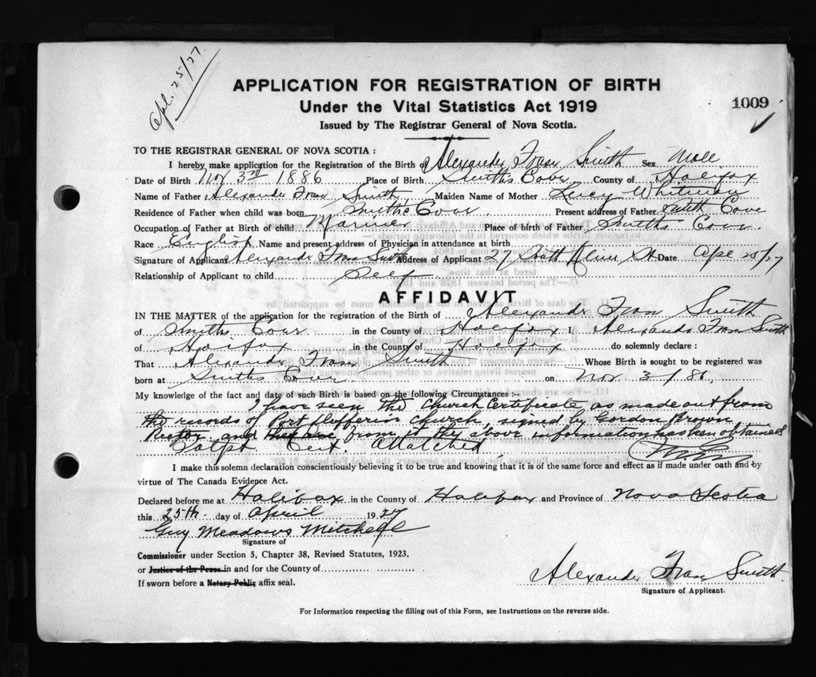 Apl. 25/27.
APPLICATION FOR REGISTRATION OF BIRTH
Under the Vital Statistics Act 1919
1009
Issued by The Registrar General of Nova Scotia.
TO THE REGISTRAR GENERAL OF NOVA SCOTIA :
I hereby make application for the Registration of the Birth of Alexander Fran Smith Sex Male
Date of Birth Nov 3rd 1886 Place of Birth Smiths Cove County of Halifax
Name of Father Alexander Fran Smith Maiden Name of Mother Lucy Whitman
Residence of Father when child was born Smiths Cove Present address of Father Smith Cove
Occupation of Father at Birth of child Mariner Place of birth of Father Smiths Cove
Race English Name and present address of Physician in attendance at birth
Signature of Applicant Alexander Fran Smith Address of Applicant 27 St Date Apl 25/27
Relationship of Applicant to child Self
AFFIDAVIT
IN THE MATTER of the application for registration of the Birth of Alexander Fran Smith
of Smiths Cove in the County of Halifax I, Alexander Fran Smith
of Halifax in the County of Halifax do solemnly declare :
That Alexander Fran Smith Whose Birth is sought to be registered was
born at Smiths Cove on Nov 3/86
My knowledge of the fact and date of such Birth is based on the following Circumstances :-
I have seen the Church Certificate as made out from
the records of Port Church, signed by Gordon Brown
Rector and from the above information has been obtained
Bapt. Cert. Attached
I make this solemn declaration conscientiously believing it to be true and knowing that is of the same force and effect as if made under oath and by
virtue of The Canada Evidence Act.
Declared before me at Halifax in the County of Halifax and Province of Nova Scotia
this 25th day of April 1927
Guy Meadows Mitchell
Signature of
Commissioner under Section 5, Chapter 38, Revised Statutes, 1923,
or Justice of the Peace in and for the County of
If sworn before a Notary Public affix seal.
Alexander Fran Smith
Signature of Applicant.
For Information respecting the filling out of this Form, see Instructions on the reverse side.